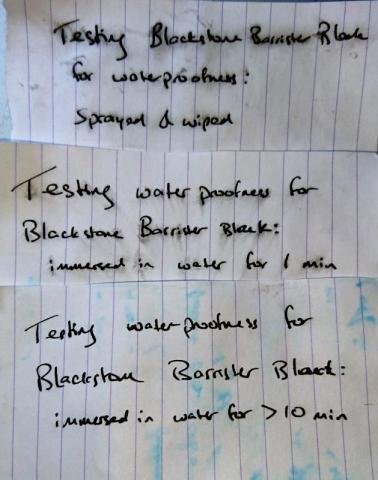 Testing Blackstone Barrister Black
for waterproofness:
Sprayed & wiped
Testing waterproofness for
Blackstone Barrister Black:
immersed in water for 1 min
Testing waterproofness for
Blackstone Barrister Black:
immersed in water for >10 min